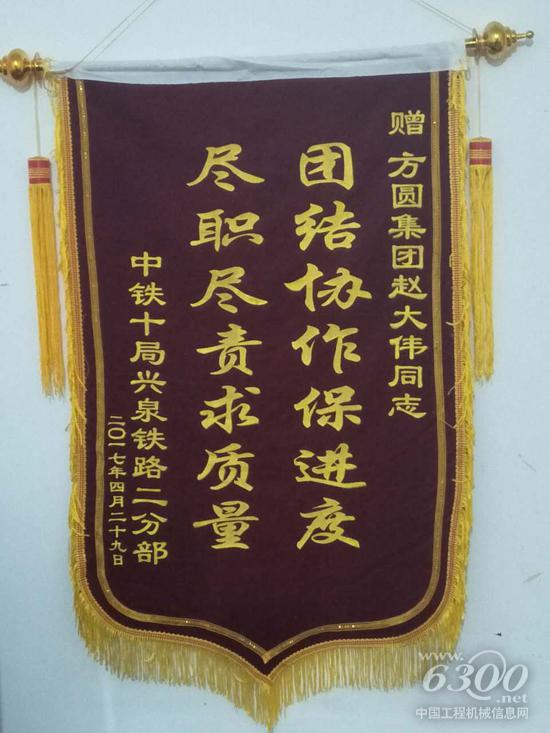 赠 方圆集团赵大伟同志
团结协作保进度
尽职尽责求质量
中铁十局兴泉铁路二分部
二〇一七年四月二十九日
www.6300.net
中国工程机械信息网